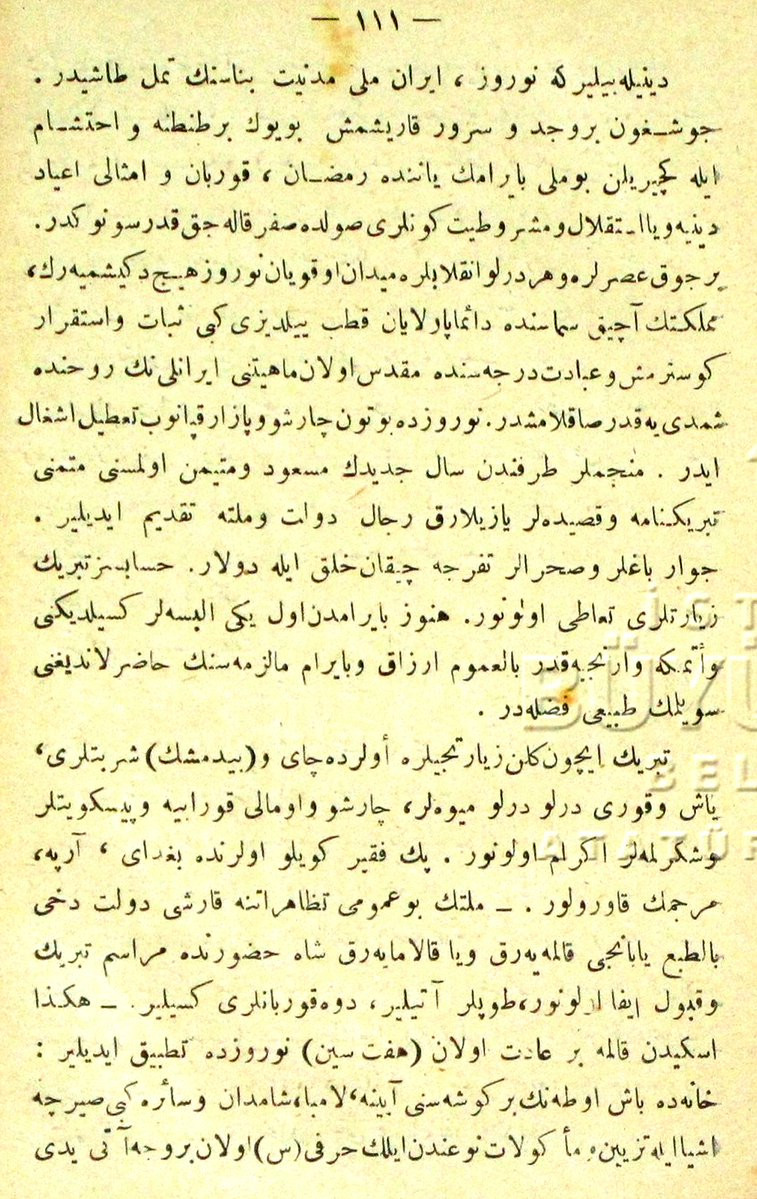 — ١١١ —
دینیله بیلیر که نوروز ، ایران ملی مدنیت بناسنك تمل طاشیدر .
جوشـغون بر وجد و سرور قاریشمش بویوك بر طنطنه و احتشـام
ایله کچیریلن بو ملی بایرامك یاننده رمضـان ، قوربان و امثالی اعیاد
دینیه و یا استقلال و مشروطیت کونلری صولده صفر قاله جق قدر سونوکدر.
بر جوق عصرلره و هر درلو انقلابلره میدان اوقویان نوروز هیـچ دکیشمیه رك،
مملکتك آچیق سماسنده دائما پارلایان قطب ییلدیزی کبی ثبات و استقرار
کوسترمش و عبادت درجه سنده مقدس اولان ماهیتنی ایرانلی نك روحنده
شمدی یه قدر صاقلامشدر. نوروزده بوتون چارشو و پازار قپانوب تعطیل اشغال
ایدر . منجملر طرفندن سال جدیدك مسعود و متیمن اولمسنی متمنی
تبریکنامه و قصیده لر یازیلارق رجال دولت و ملته تقدیم ایدیلیر .
جوار باغلر و صحرالر تفرجه چیقان خلق ایله دولار. حسابسز تبریك
زیارتلری تعاطی اولونور. هنوز بایرامدن اول یکی البسه لر کسیلدیکنی
و أتمکه وارنجیه قدر بالعموم ارزاق و بایرام مالزمه سنك حاضرلاندیغنی
سویلمك طبیعی فضله در .
تبریك ایچون کلن زیارتجیلره أولرده چای و (بیدمشك) شربتلری،
یاش و قوری درلو درلو میوه لر، چارشو و اومالی قورابیه و پیسکویتلر
و شکرلمه لر اکرام اولونور . پك فقیر کویلو اولرنده بغدای ، آرپه،
مرجمك قاورولور . ـ ملتك بو عمومی تظاهراتنه قارشی دولت دخی
بالطبع یابانجی قالمه یه رق و یا قالامایه رق شاه حضورنده مراسم تبریك
و قبول ایفا اولونور، طوپلر آتیلیر، دوه قوربانلری کسیلیر. ـ هکذا
اسکیدن قالمه بر عادت اولان (هفت سین) نوروزده تطبیق ایدیلیر :
خانه ده باش اوطه نك بر کوشه سنی آیینه، لامبا، شامدان و سائره کبی صیرچه
اشیا ایله تزیین و مأکولات نوعندن ایلك حرفی (س) اولان بر وجه آتی یدی